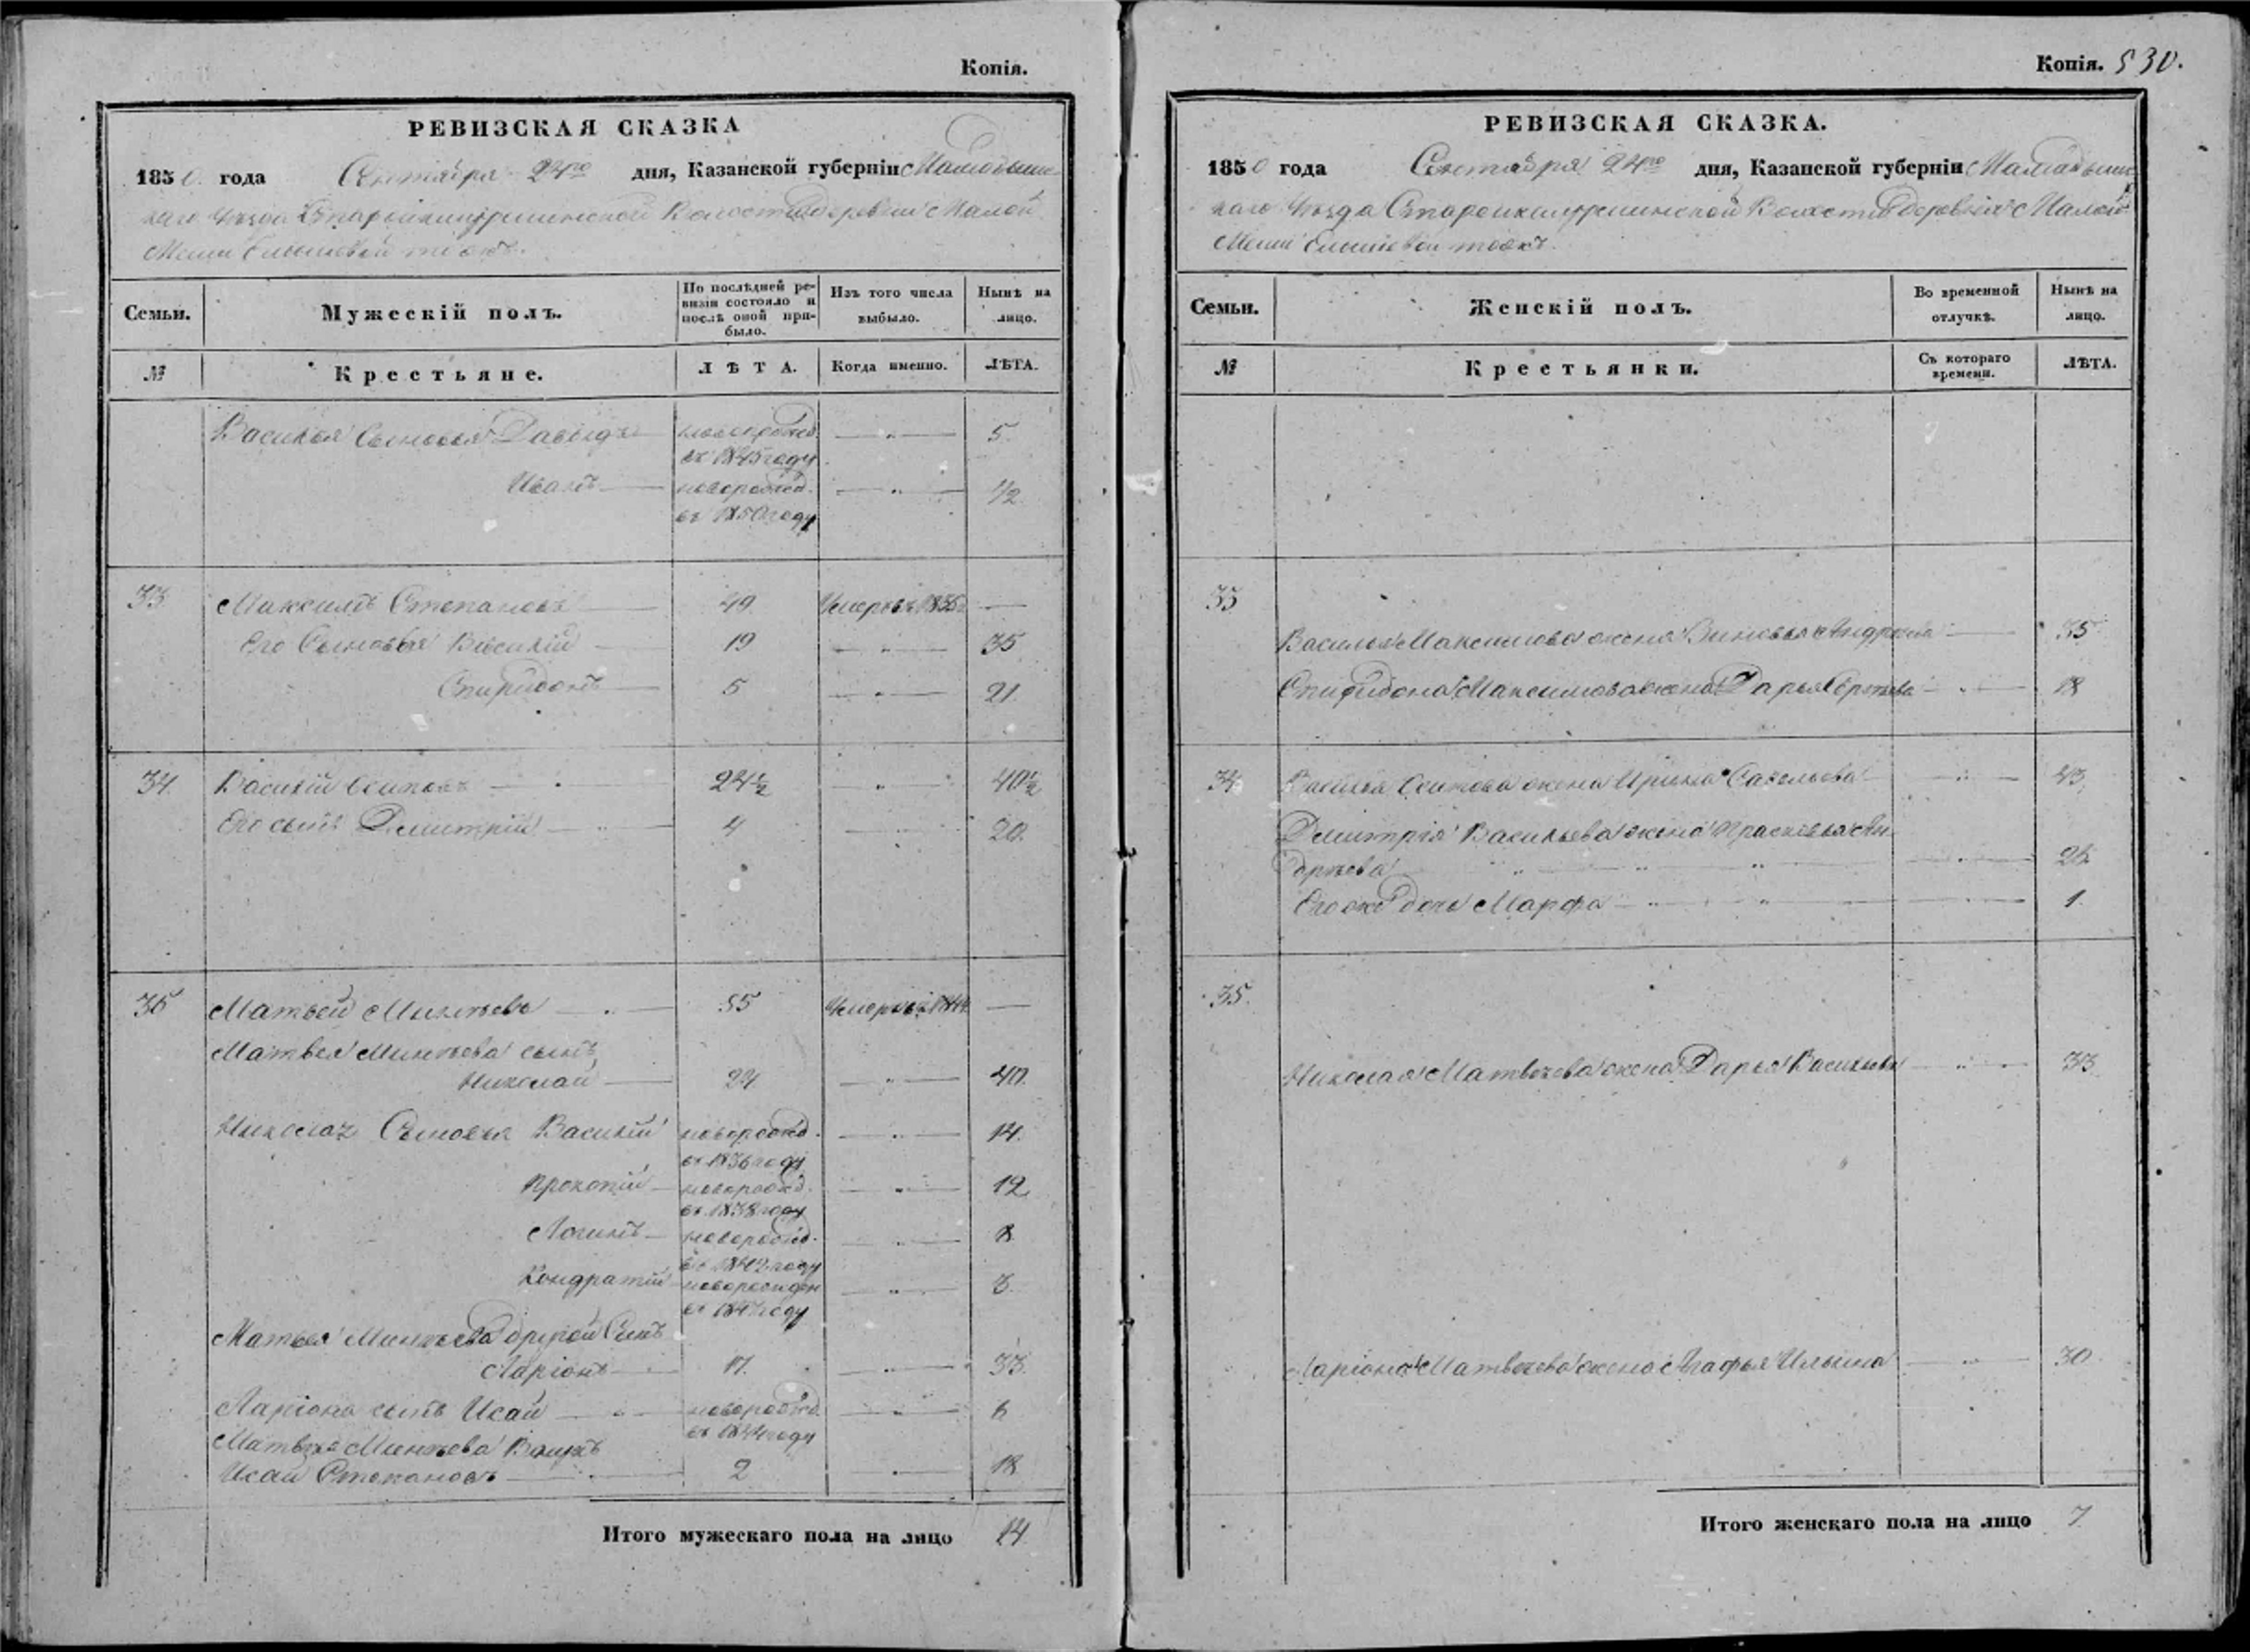 Копія.
РЕВИЗСКАЯ СКАЗКА
1850 года Сентября 24го дня, Казанской губерніи Мамадыш-
каго Уѣзда Волости деревни Малой
Меши тожъ.
Семьи.
Мужескій полъ.
По послѣдней ре-
визіи состояло и
послѣ оной при-
было.
Изъ того числа
выбыло.
Нынѣ на
лицо.
№
Крестьяне.
ЛѢТА.
Когда именно.
ЛѢТА.
Василья Сыновья Давыдъ новорожд. — " — 5.
въ 1845 году
Иванъ новорожд. — " — 1/2
въ 1850 году
33 Максимъ Степановъ 49 Умеръ въ —
Его Сыновья Василій 19 — " — 35
Спиридонъ 5 — " — 21.
34. Василій Осиповъ 24 1/2 " 40 1/2
Его сынъ Дмитрій 4 20.
35 Матвей 55 Умеръ въ —
Матвея сынъ
Николай 24 — " — 40.
Николая Сыновья Василій новорожд. — " — 14.
въ 1836 году
Прокопій новорожд. — " — 12
въ 1838 году
Логинъ новорожд. — " — 8
въ 1842 году
Кондратій новорожден — " — 3.
въ 1847 году
Матвея другой Сынъ
Ларіонъ 17. — " — 33.
Ларіона сынъ Исай новорожд. — " — 6
въ 1844 году
Матвѣя Внукъ
Исай Степановъ 2 — " — 18
Итого мужескаго пола на лицо 14
Копія. 530.
РЕВИЗСКАЯ СКАЗКА.
1850 года Сентября 24го дня, Казанской губерніи Мамадыш-
каго Уѣзда Волости деревни Малой
Меши тожъ.
Семьи.
Женскій полъ.
Во временной
отлучкѣ.
Нынѣ на
лицо.
№
Крестьянки.
Съ котораго
времени.
ЛѢТА.
33
Василья Максимова жена 35
Спиридона Максимова жена Дарья — " — 18
34 Василья Осипова жена Ирина Савельева — " — 43.
Дмитрія Васильева жена Прасковья Ан-
дрѣева 24
Его же дочь Марфа 1.
35.
Николая Матвѣева жена Дарья Васильева — " — 33
Ларіона Матвѣева жена Агафья Ильина — " — 30
Итого женскаго пола на лицо 7